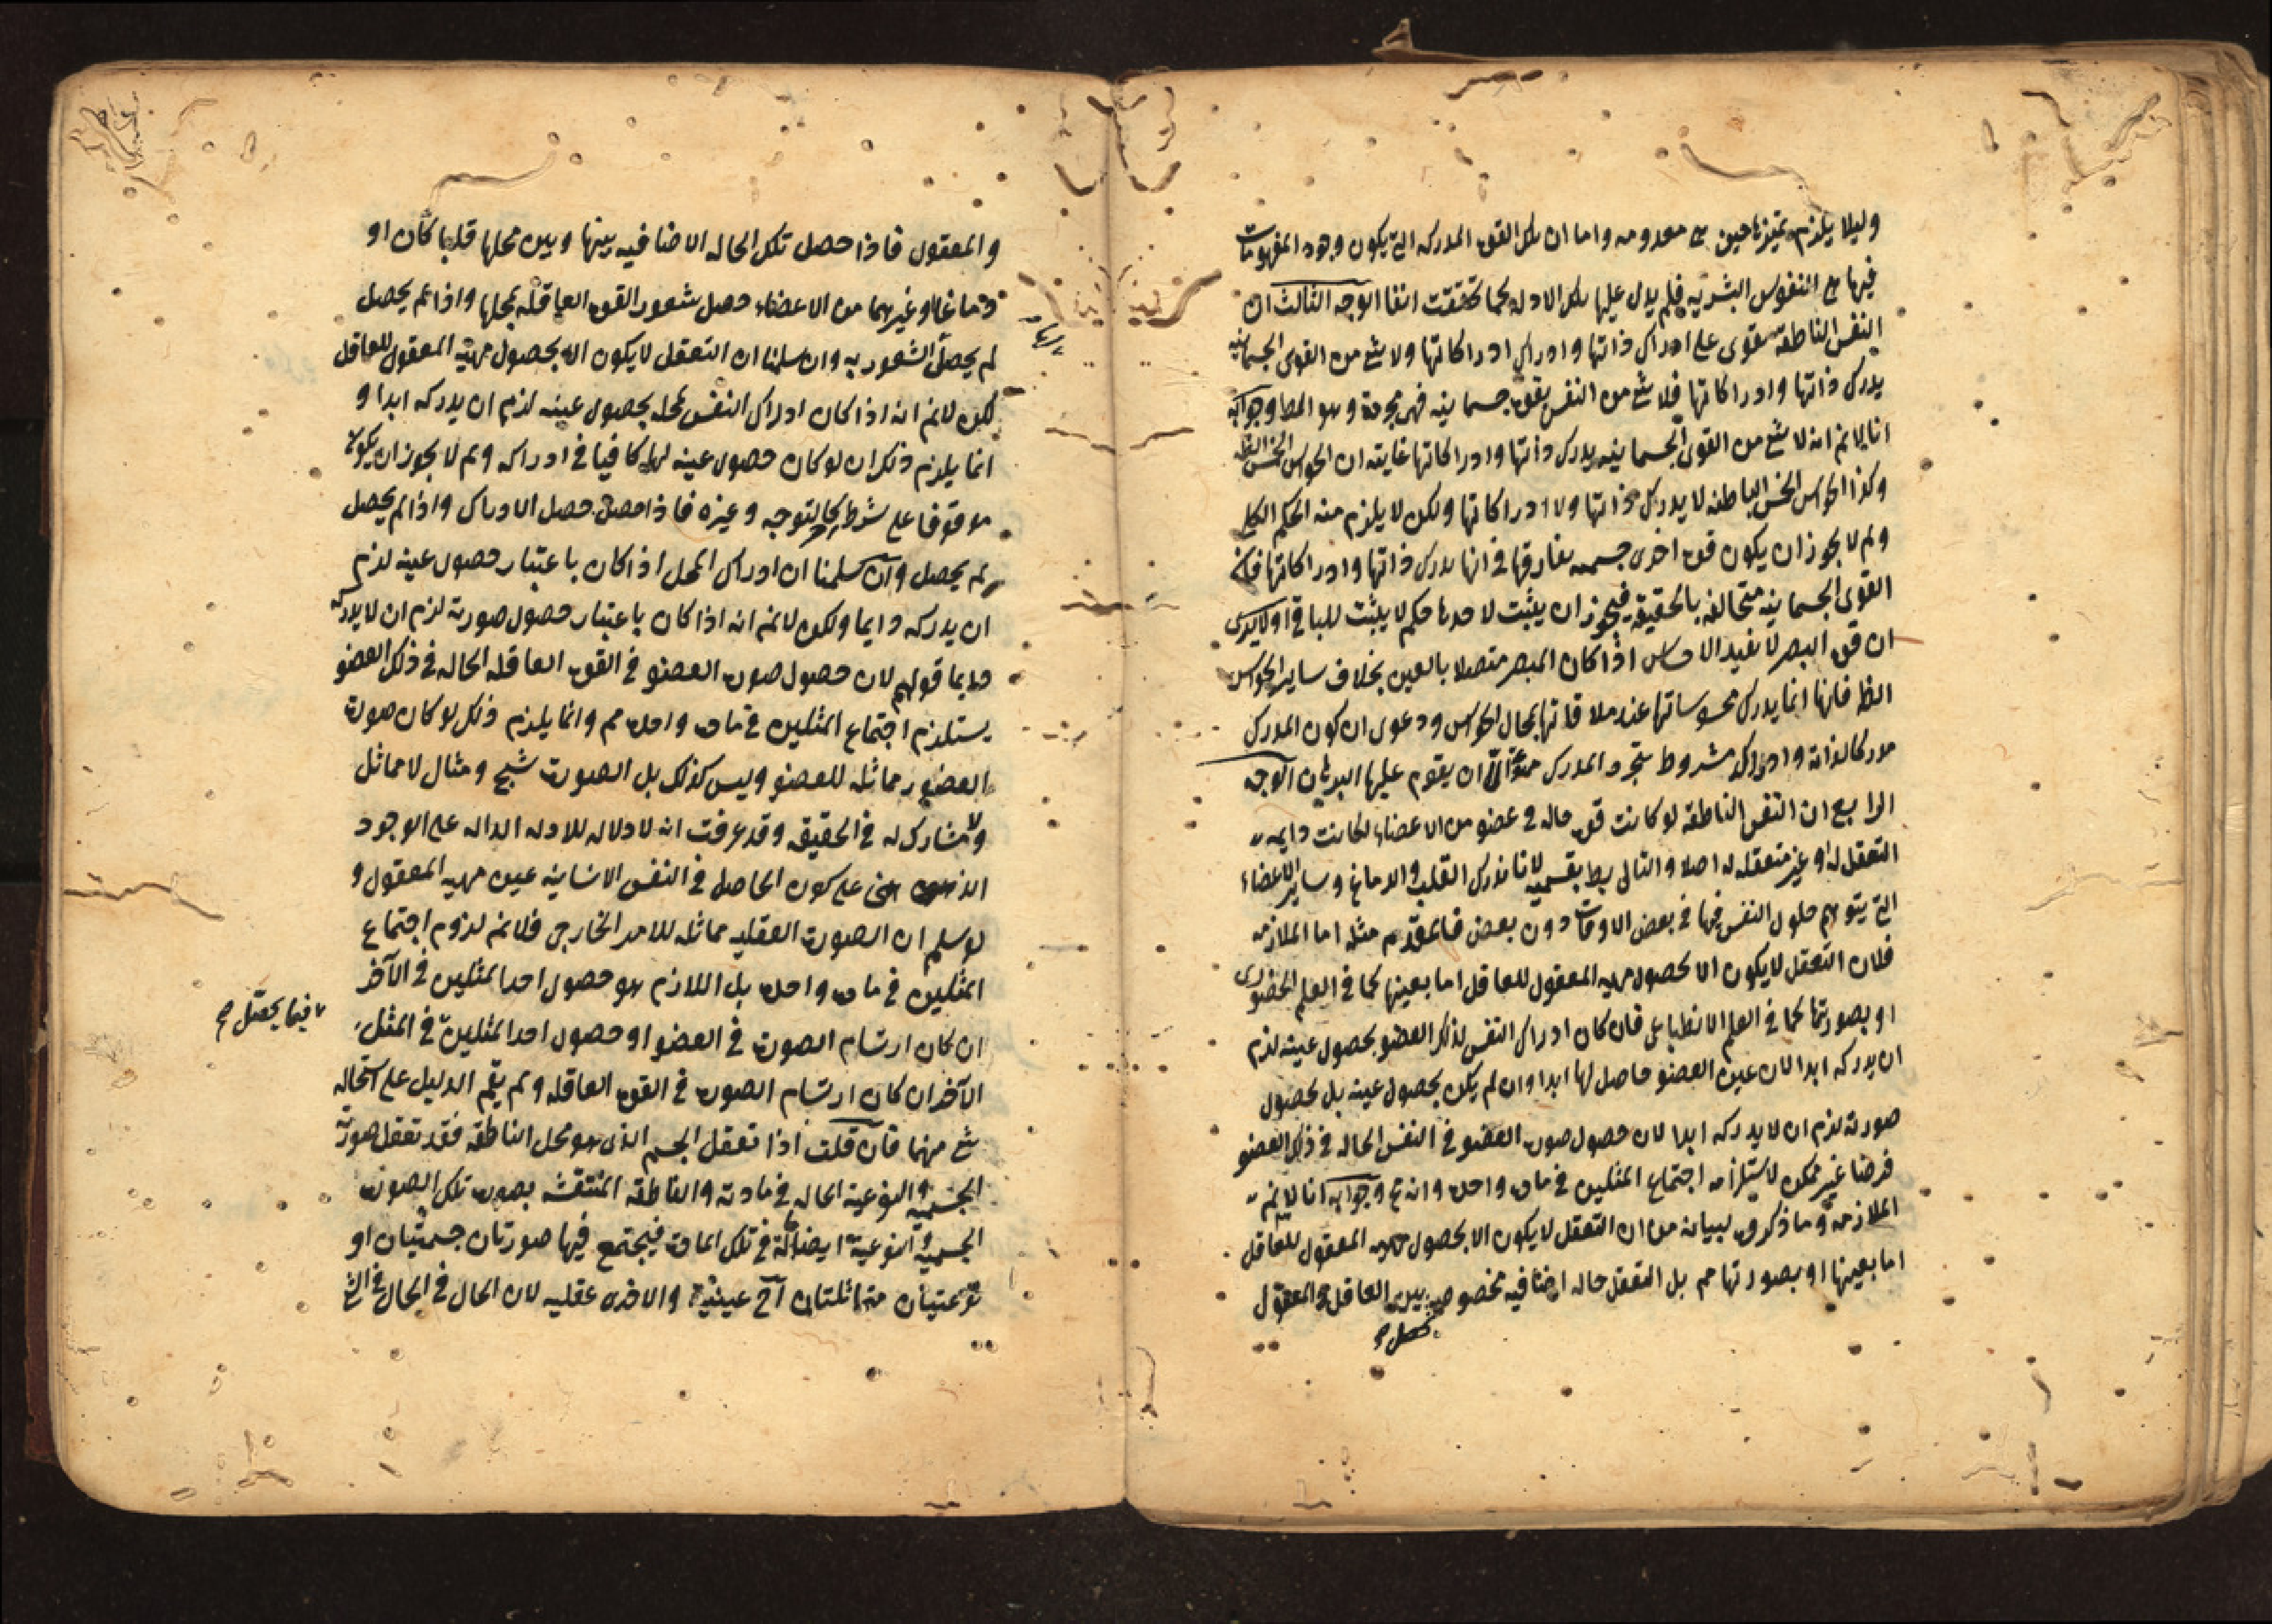 وليلا يلزم تميزها حين هي معدومه واما ان تلك القوة المدركه التي يكون وجود المفهومات
فيها هي النفوس البشريه فلم يدل عليها تلك الادله كما تحققت انفا الوجه الثالث ان
النفس الناطقة تقوى على ادراك ذاتها وادراك ادراكاتها ولا شئ من القوى الجسمانيه
يدرك ذاتها وادراكاتها فلا شئ من النفس بقوة جسمانيه فهي مجردة وهو المط وجوابه
انا لا نم انه لا شئ من القوى الجسمانيه يدرك ذاتها وادراكاتها غايته ان الحواس الخمس الظ
وكذا الحواس الخمس الباطنه لا يدرك ذاتها ولا ادراكاتها ولكن لا يلزم منه الحكم الكلي
ولم لا يجوز ان يكون قوة اخرى جسميه يفارقها في انها يدرك ذاتها وادراكاتها فان
القوى الجسمانيه متخالفه بالحقيقه فيجوز ان يثبت لاحدها حكم لا يثبت للباقي او لا يرى
ان قوة البصر لا يفيد الاحساس اذا كان المبصر متصلا بالعين بخلاف ساير الحواس
الظ فانها انما يدرك محسوساتها عند ملاقاتها بمحال الحواس ودعوى ان كون المدرك
مدركا لذاته وادراكه مشروط بتجرد المدرك ممنوعة الى ان يقوم عليها البرهان الوجه
الرابع ان النفس الناطقه لو كانت قوة حاله في عضو من الاعضاء لكانت دايمه
التعقل له او غير متعقله له اصلا والتالى بط بقسميه لانا ندرك القلب والدماغ وساير الاعضاء
التي يتوهم حلول النفس فيها في بعض الاوقات دون بعض فالمقدم مثله اما الملازمه
فلان التعقل لا يكون الا بحصول مهيه المعقول للعاقل اما بعينها كما في العلم الحضورى
او بصورتها كما في العلم الانطباعى فان كان ادراك النفس لذلك العضو بحصول عينه لزم
ان يدركه ابدا لان عين العضو حاصل لها ابدا وان لم يكن بحصول عينه بل بحصول
صورته لزم ان لا يدركه ابدا لان حصول صورة العضو في النفس الحاله في ذلك العضو
فرضا غير ممكن لاستلزامه اجتماع المثلين في مادة واحدة وانه مح وجوابه انا لا نم
الملازمه وما ذكروه لبيانه من ان التعقل لا يكون الا بحصول مهيه المعقول للعاقل
اما بعينها او بصورتها مم بل التعقل حاله اضافيه مخصوصه بين العاقل والمعقول
والمعقول فاذا حصل تلك الحاله الاضافيه بينها وبين محلها قلبا كان او
دماغا او غيرهما من الاعضاء حصل شعور القوة العاقله بمحلها واذا لم يحصل
لم يحصل الشعور به وان سلمنا ان التعقل لا يكون الا بحصول مهية المعقول للعاقل
لكن لا نم انه اذا كان ادراك النفس لمحله بحصول عينه لزم ان يدركه ابدا و
انما يلزم ذلك ان لو كان حصول عينه لها كافيا في ادراكه ولم لا يجوز ان يكون
موقوفا على شرط كالتوجه وغيره فاذا حصل حصل الادراك واذا لم يحصل
لم يحصل وان سلمنا ان ادراك المحل اذا كان باعتبار حصول عينه لزم
ان يدركه دايما ولكن لا نم انه اذا كان باعتبار حصول صورته لزم ان لا يدركه
دايما قولهم لان حصول صورة العضو في القوة العاقله الحاله في ذلك العضو
يستلزم اجتماع المثلين في مادة واحدة مم وانما يلزم ذلك لو كان صورة
العضو مماثله للعضو وليس كذلك بل الصورة شبح ومثال لا مماثل
ولا مشارك له في الحقيقه وقد عرفت انه لا دلاله للادله الداله على الوجود
الذهنى على كون الحاصل في النفس الانسانيه عين مهيه المعقول و
لو سلم ان الصورة العقليه مماثله للامر الخارجى فلا نم لزوم اجتماع
المثلين في مادة واحدة بل اللازم هو حصول احد المثلين في الآخر
ان كان ارتسام الصورة في العضو او حصول احد المثلين في المثل
فيما يحصل صح
الآخر ان كان ارتسام الصورة في القوة العاقله ولم يقم الدليل على استحاله
شئ منهما فان قلت اذا تعقل الجسم الذى هو محل الناطقه فقد تعقل صورته
الجسميه والنوعية الحاله في مادته والناطقه المنتقشه بصورة تلك الصورة
الجسميه والنوعية ايضا حالة في تلك المادة فيجتمع فيها صورتان جسميتان او
نوعيتان متماثلتان احديهما عينية والاخرى عقليه لان الحال في الحال في الشئ